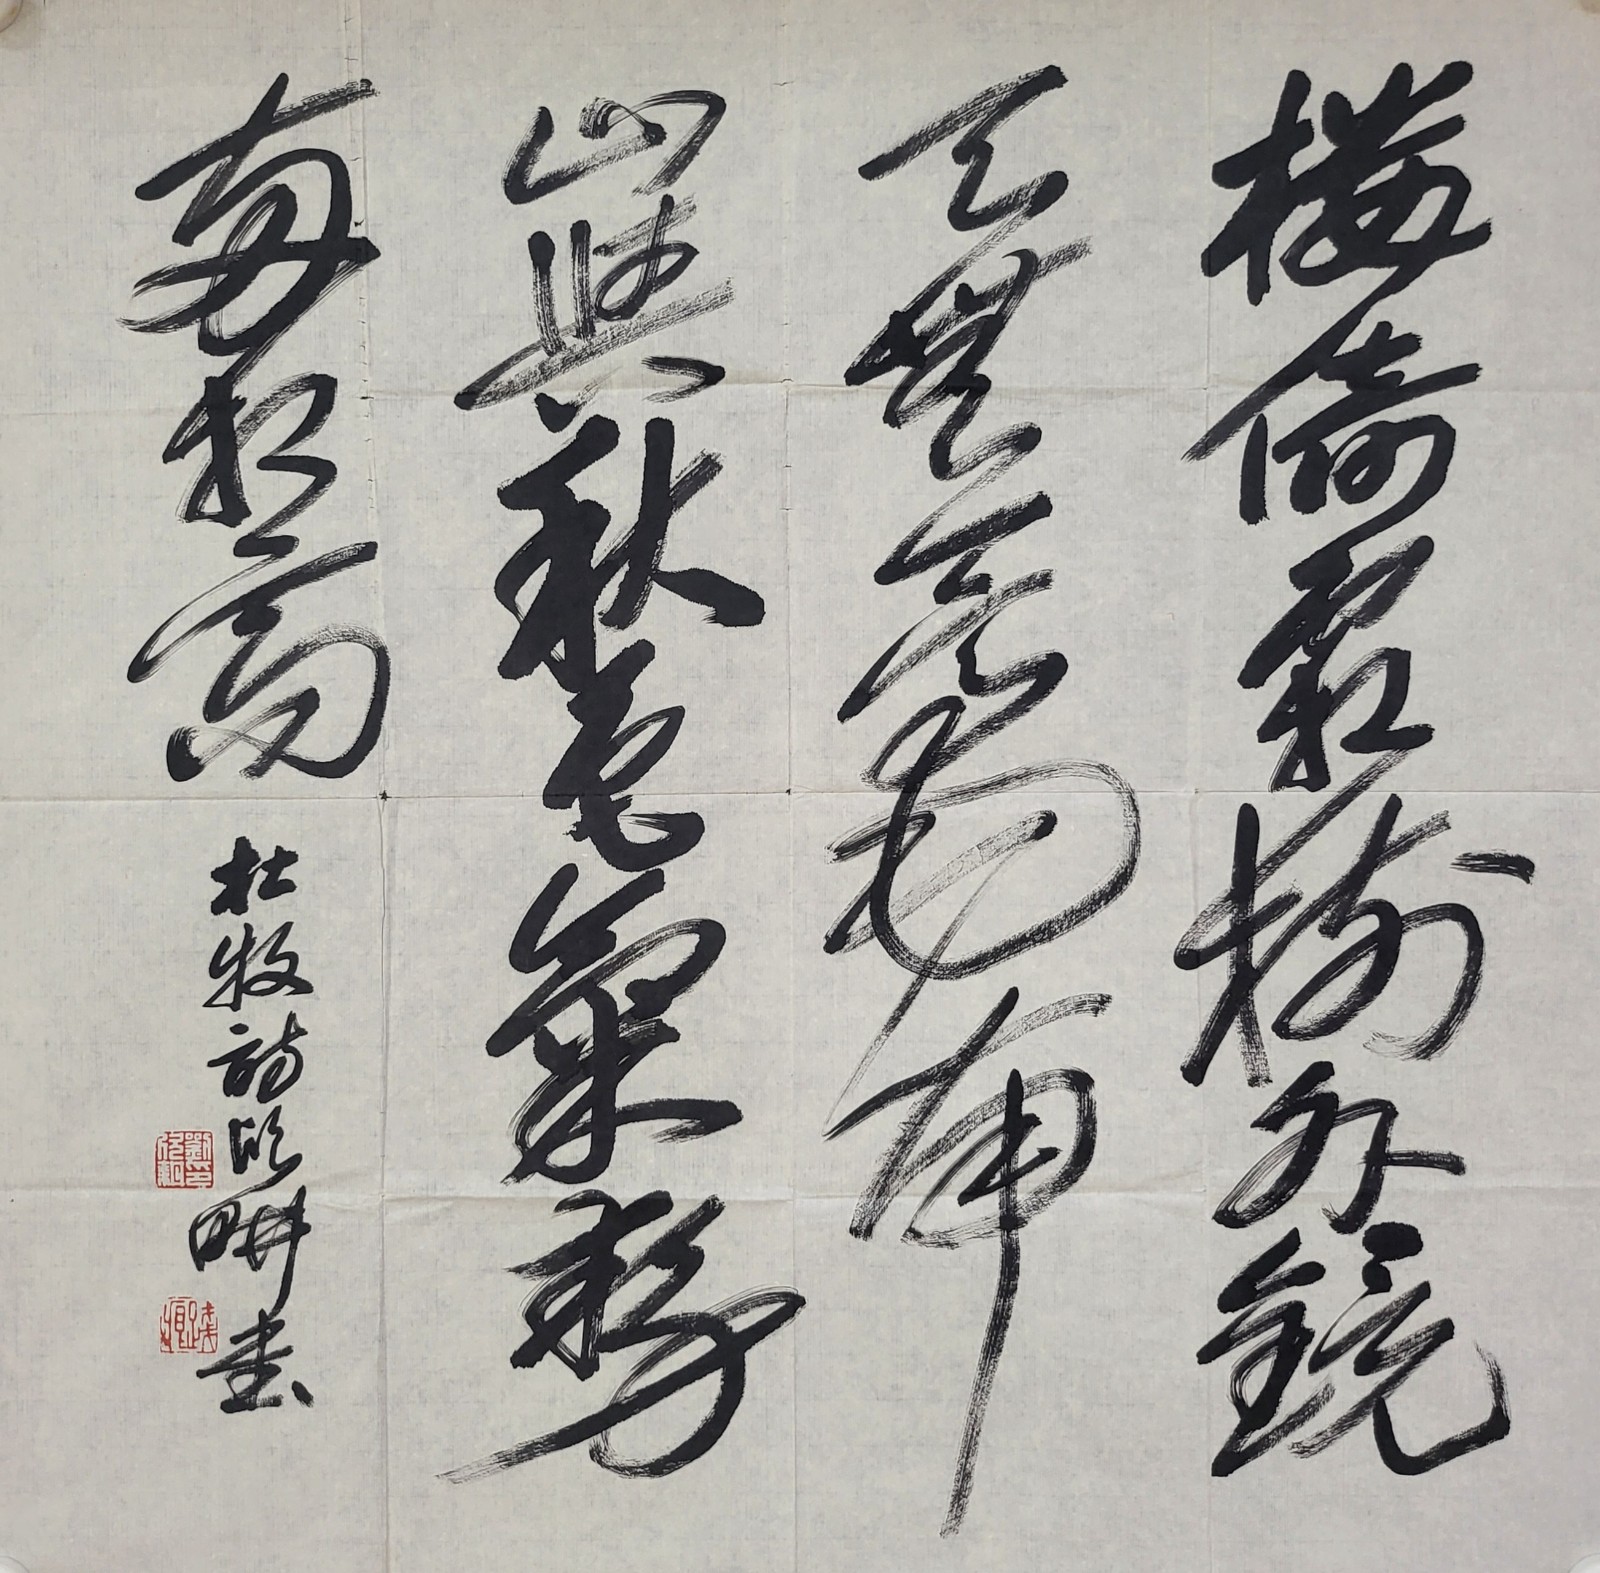 樓倚霜樹外鏡
天無一毫南
山與秋色氣勢
兩相高
杜牧詩欣畊書